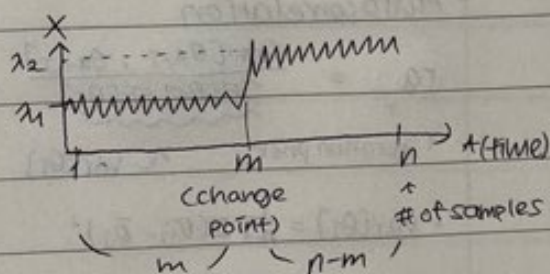 X
λ2
λ1
t (time)
1 m n
(change point)
# of samples
m n-m